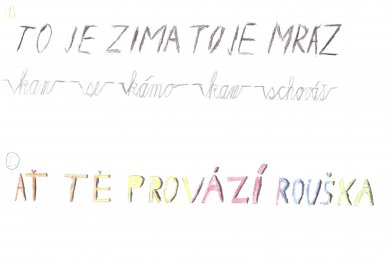 1)
TO JE ZIMA TO JE MRÁZ
kam se kámo kam schováš
AŤ TĚ PROVÁZÍ ROUŠKA